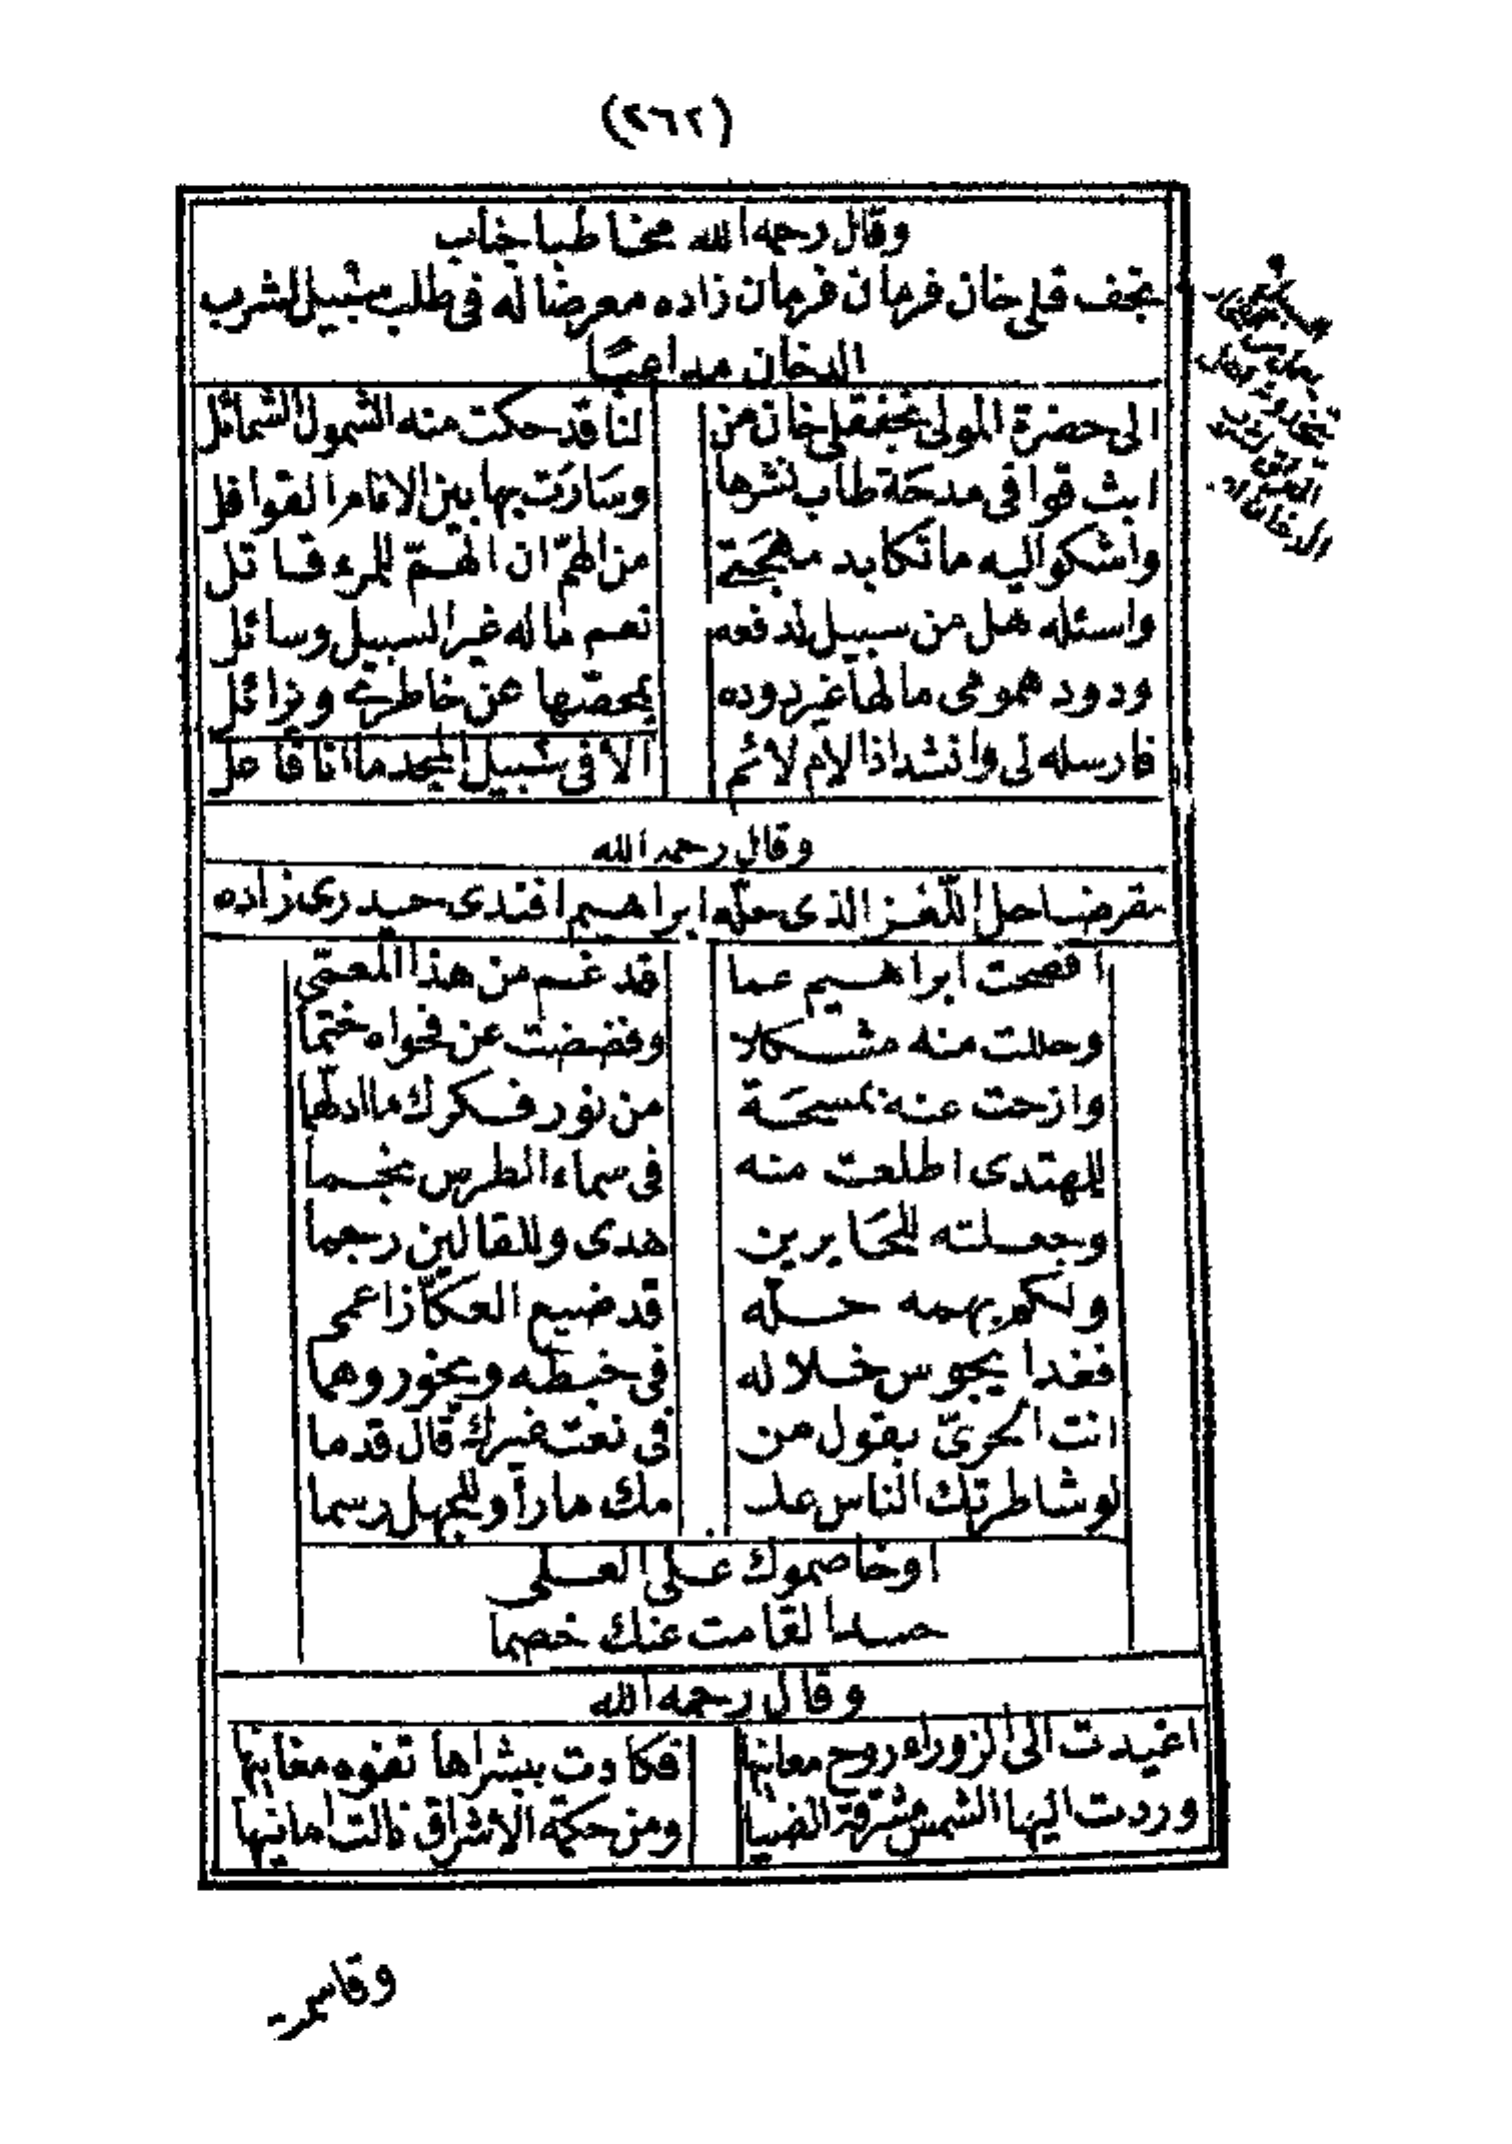 (٢٦٢)
وقال رحمه الله مخاطبا جناب
نجف قلي خان فرمان فرمان زاده معرضا له في طلب سبيل لشرب
الدخان مداعبا
الى حضرة المولى نجفقلي خان من لنا قد حكت منه الشمول الشمائل
ابث قوافى مدحة طاب نشرها وسارت بها بين الانام القوافل
واشكو اليه ما تكابد مهجتى من الهم ان الهم للمرء قاتل
واسئله هل من سبيل لدفعه نعم ما له غير السبيل وسائل
ودود همومى ما لها غير دوده يمحصها عن خاطرى ويزائل
فارسله لى وانشد اذا لام لائم الا فى سبيل المجد ما انا فاعل
وقال رحمه الله
مقرضا حل اللغز الذى حله ابراهيم افندى حيدرى زاده
افصحت ابراهيم عما قد غم من هذا المعمى
وحللت منه مشكلا وفضضت عن فحواه ختما
وازحت عنه بمسحة من نور فكرك ما ادلهما
للمهتدى اطلعت منه فى سماء الطرس نجما
وجعلته للحايرين هدى وللقالين رجما
ولكم بهمه حله قد ضيع العكاز اعمى
فغدا يجوس خلاله فى خبطه ويخور وهما
انت الحرى بقول من فى نعت غيرك قال قدما
لو شاطرتك الناس علـ مك ما رأو للجهل رسما
او خاصموك على العلى
حسدا لقامت عنك خصما
وقال رحمه الله
اعيدت الى الزوراء روح معانيها فكادت ببشراها تفوه مغانيها
وردت اليها الشمس مشرقة الضيا ومن حكمة الاشراق نالت امانيها
وقاسمت